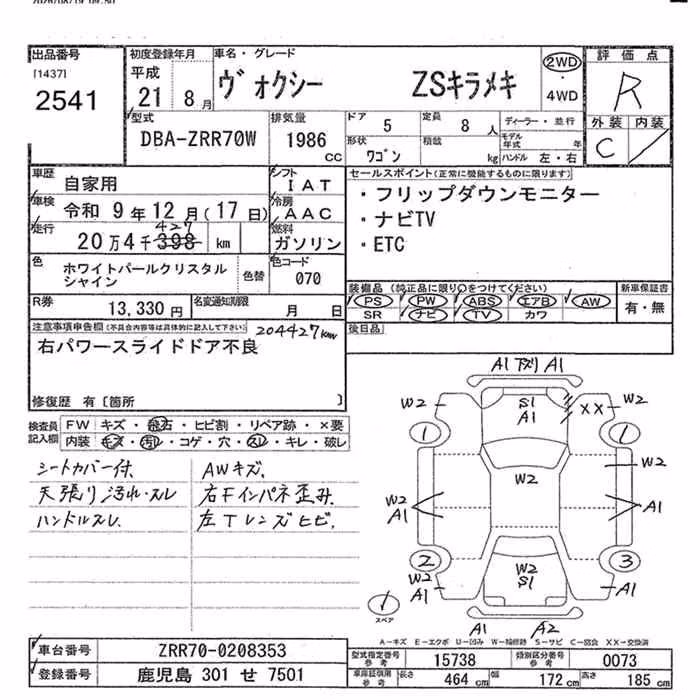 出品番号
[1437]
2541
初度登録年月
平成
21 8月
車名・グレード
ヴォクシー ZSキラメキ
2WD
・
4WD
評価点
R
外装 内装
C /
型式
DBA-ZRR70W
排気量
1986
CC
ドア
5
定員
8 人
ディーラー・並行
形状
ワゴン
積載
kg
モデル年式 年
ハンドル 左・右
車歴
自家用
シフト
IAT
車検
令和 9年 12月(17日)
冷房
AAC
走行
427
20万4千398 km
燃料
ガソリン
色
ホワイトパールクリスタル
シャイン
色替
色コード
070
R券
13,330円
名変通知期限
月 日
セールスポイント(正常に機能するものに限ります)
・フリップダウンモニター
・ナビTV
・ETC
装備品 (純正品に限り○をつけてください)
PS PW ABS エアB AW
SR ナビ TV カワ
新車保証書
有・無
後日品
注意事項申告欄(不具合内容等は具体的に記入して下さい) 204427km
右パワースライドドア不良
修復歴 有〔箇所 〕
検査員
記入欄
FW キズ・飛石・ヒビ割・リペア跡・×要
内装 キズ・汚れ・コゲ・穴・スレ・キレ・破レ
シートカバー付、 AWキズ、
天張り汚れ・スレ 右Fインパネ歪み、
ハンドルスレ、 左Tレンズヒビ、
A1 下ズリ A1
W2 S1 A1 XX W2
1 1
W2 W2
W2 A1 A1
2 3
W2 A1 W2 S1 A1
1
スペア
A1 A2
A-キズ E-エクボ U-凹み W-補修跡 S-サビ C-腐食 XX-交換済
車台番号
ZRR70-0208353
登録番号
鹿児島 301 せ 7501
型式指定番号
参考
15738
類別区分番号
参考
0073
車庫証明用
参考
長さ
464 cm
幅
172 cm
高さ
185 cm